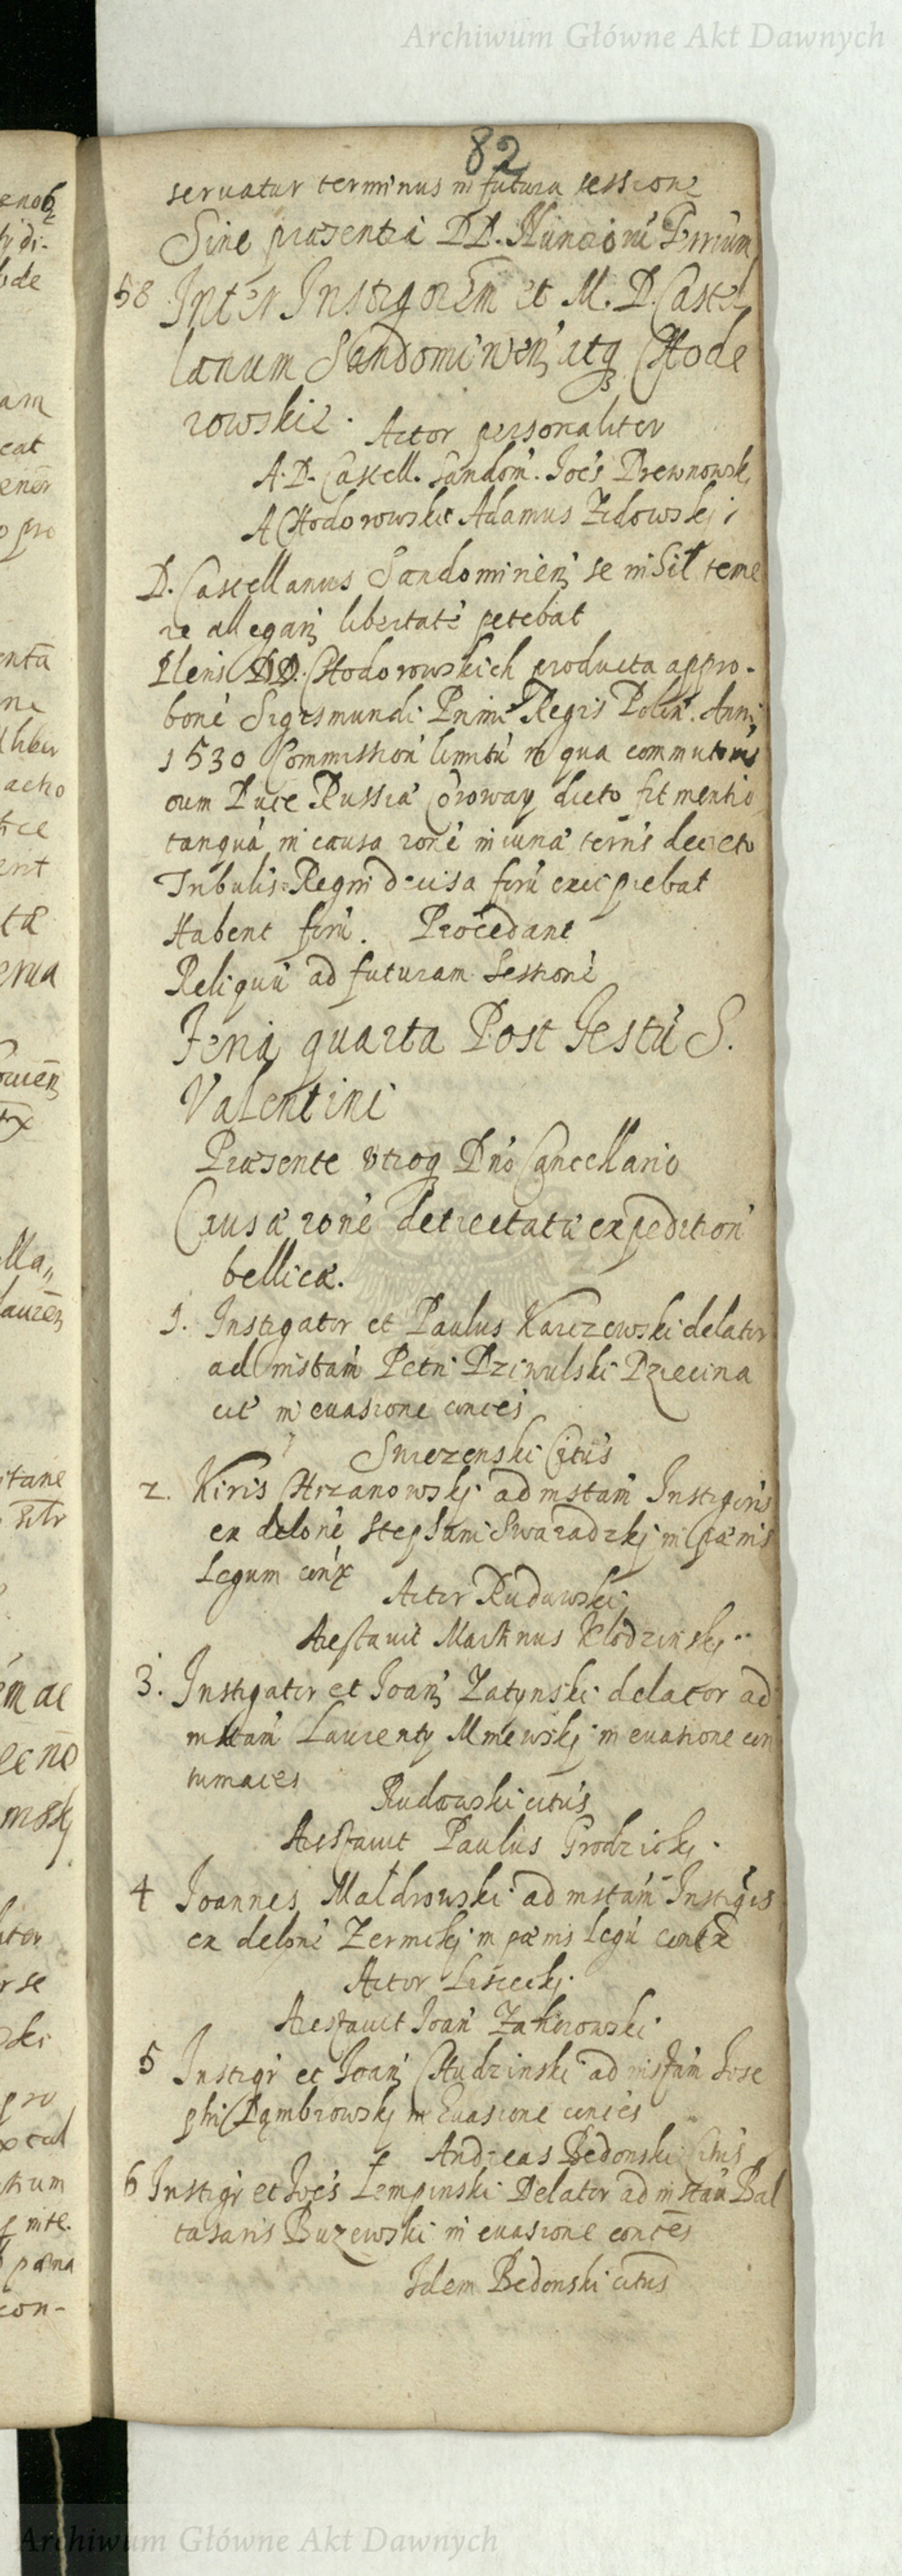 Archiwum Główne Akt Dawnych
82
seruatur terminus in futura sessione
Sine præsentia DD. Nuncior̄ Trrūm
58 Inter Instigorem et M. D. Castel
lanum Sandomirien̄ atq Chode
rowskie. Actor personaliter
A. D. Castell. Sandom̄. Joēs Drewnowskj
A Chodorowskie Adamus Zidowskj
D. Castellanus Sandomirien̄ se nihil teme
re allegan̄ libertatē petebat
DD. Chodorowskich producta appro-
bonē Sigismundi Primi Regis Polin̄. Anni
1530 Commission̄ limitū in qua commutonis
cum Duce Russiæ Coroway dicto fit mentio
tanquā in causa ronē terris decreto
Tribulis Regni decisa forū excipiebat
Habent forū. Procedant
Reliquū ad futuram Sessionē
Feria quarta Post Festū S.
Valentini
Præsente vtroq Dnō Cancellario
Causæ ronē detrectatæ expedition̄
bellicæ.
1. Instigator et Paulus Karczewski delator
ad instān Petri Dziwulski Dziecina
cit in euasione conces
Sniezenski Citus
2. Kiris Chrzanowskj ad instān Instigoris
ex delonē Stephani Swaradzkj in pænis
Legum contx
Actor Rudawski
Aestauit Martinus Klodzinskj
3. Instigator et Joan̄ Zatynski delator ad
instān Laurenty Mniewskj in euasione con
tumaces
Rudawski citus
Aestauit Paulus Grodzickj.
4 Joannes Maldrowski ad instān Instigris
ex delonē Zernickj in pænis Legū contx
Actor Lisieckj
Aestauit Joan̄
5 Instigr et Joan̄ Chudzinski ad instān Jose
phi Dąmbrowskj in Euasione conces
Andreas Bedonski Citus
6 Instigr et Joēs Lempinski Delator ad instān Bal
tasaris Buzewski in euasione contes
Idem Bedonski citus
Archiwum Główne Akt Dawnych